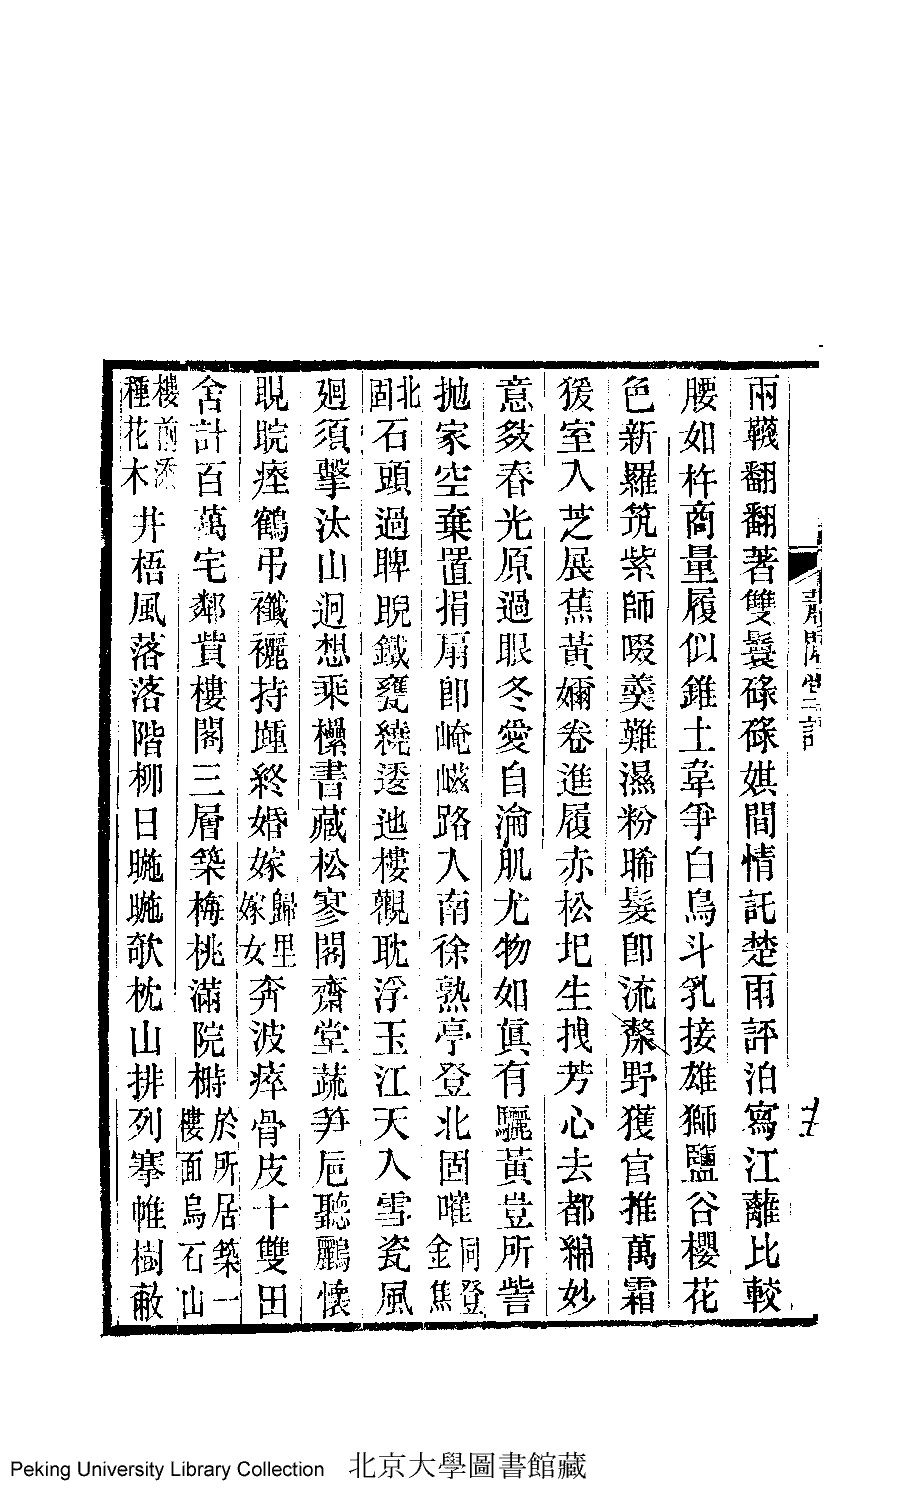 兩韈翻翻著雙鬟碌碌娸間情託楚雨評泊寫江蘺比較
腰如杵商量履似錐土葦爭白烏斗乳接雄獅鹽谷櫻花
色新羅筑紫師啜羹難濕粉晞髮卽流漦野獲官推萬霜
猨室入芝展蕉黃嬭卷進履赤松圯生拽芳心去都綿妙
意敍春光原過眼冬愛自瀹肌尤物如眞有驪黃豈所訾
拋家空棄置捐扇卽崦嵫路人南徐熟亭登北固嚾同登金焦
北固石頭過睥睨鐵甕繞逶迤樓觀耽浮玉江天入雪瓷風
廻須擊汰山迥想乘欙書藏松寥閣齋堂蔬笋卮聽鸝懷
睍睆瘞鶴弔襳襹持踵終婚嫁歸里嫁女奔波瘁骨皮十雙田
舍計百萬宅鄰貲樓閣三層築梅桃滿院榯於所居築一樓面烏石山
樓前添種花木井梧風落落階柳日暆暆欹枕山排列搴帷樹蔽